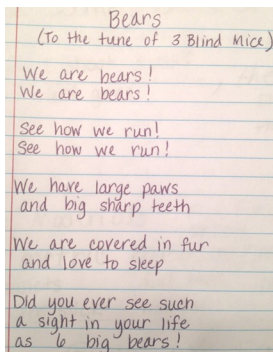 Bears
(To the tune of 3 Blind Mice)
We are bears!
We are bears!
See how we run!
See how we run!
We have large paws
and big sharp teeth
We are covered in fur
and love to sleep
Did you ever see such
a sight in your life
as 6 big bears!